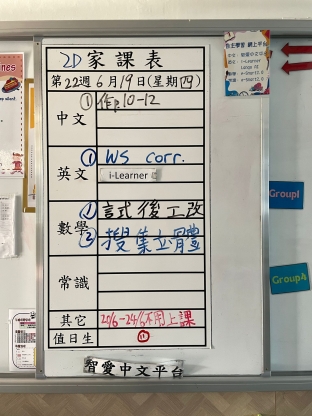 2D 家課表
第22週 6月19日(星期四)
中文 ① 作:10-12
英文 ① WS corr.
i-Learner
數學 ① 試後工改
② 搜集立體
常識
其它 20/6-24/6不用上課
值日生 ⑪
智愛中文平台
自主學習 網上平台
Group1
Group4